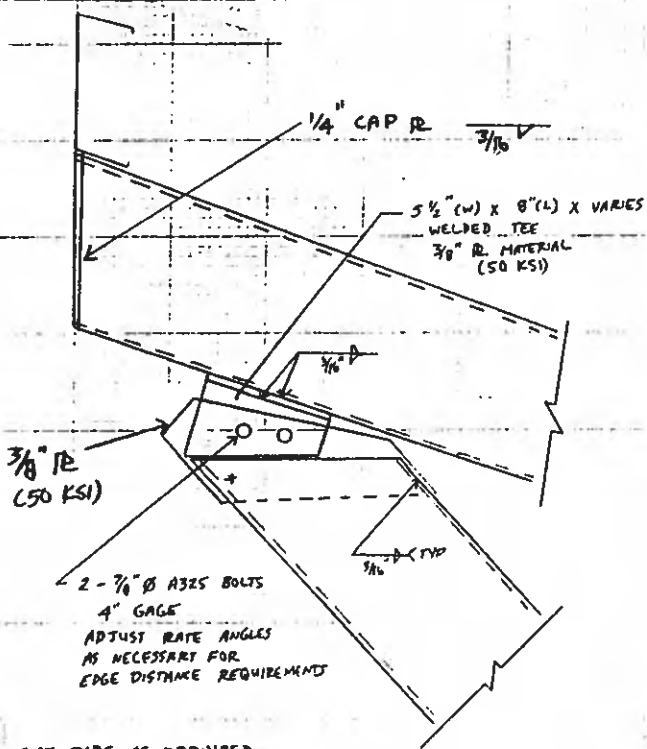 1/4" CAP PL 3/16
5 1/2" (W) X 8"(L) X VARIES
WELDED TEE
3/8" PL MATERIAL
(50 KSI)
3/16"
3/8" PL
(50 KSI)
3/16" TYP
2 - 7/8" Ø A325 BOLTS
4" GAGE
ADJUST PLATE ANGLES
AS NECESSARY FOR
EDGE DISTANCE REQUIREMENTS